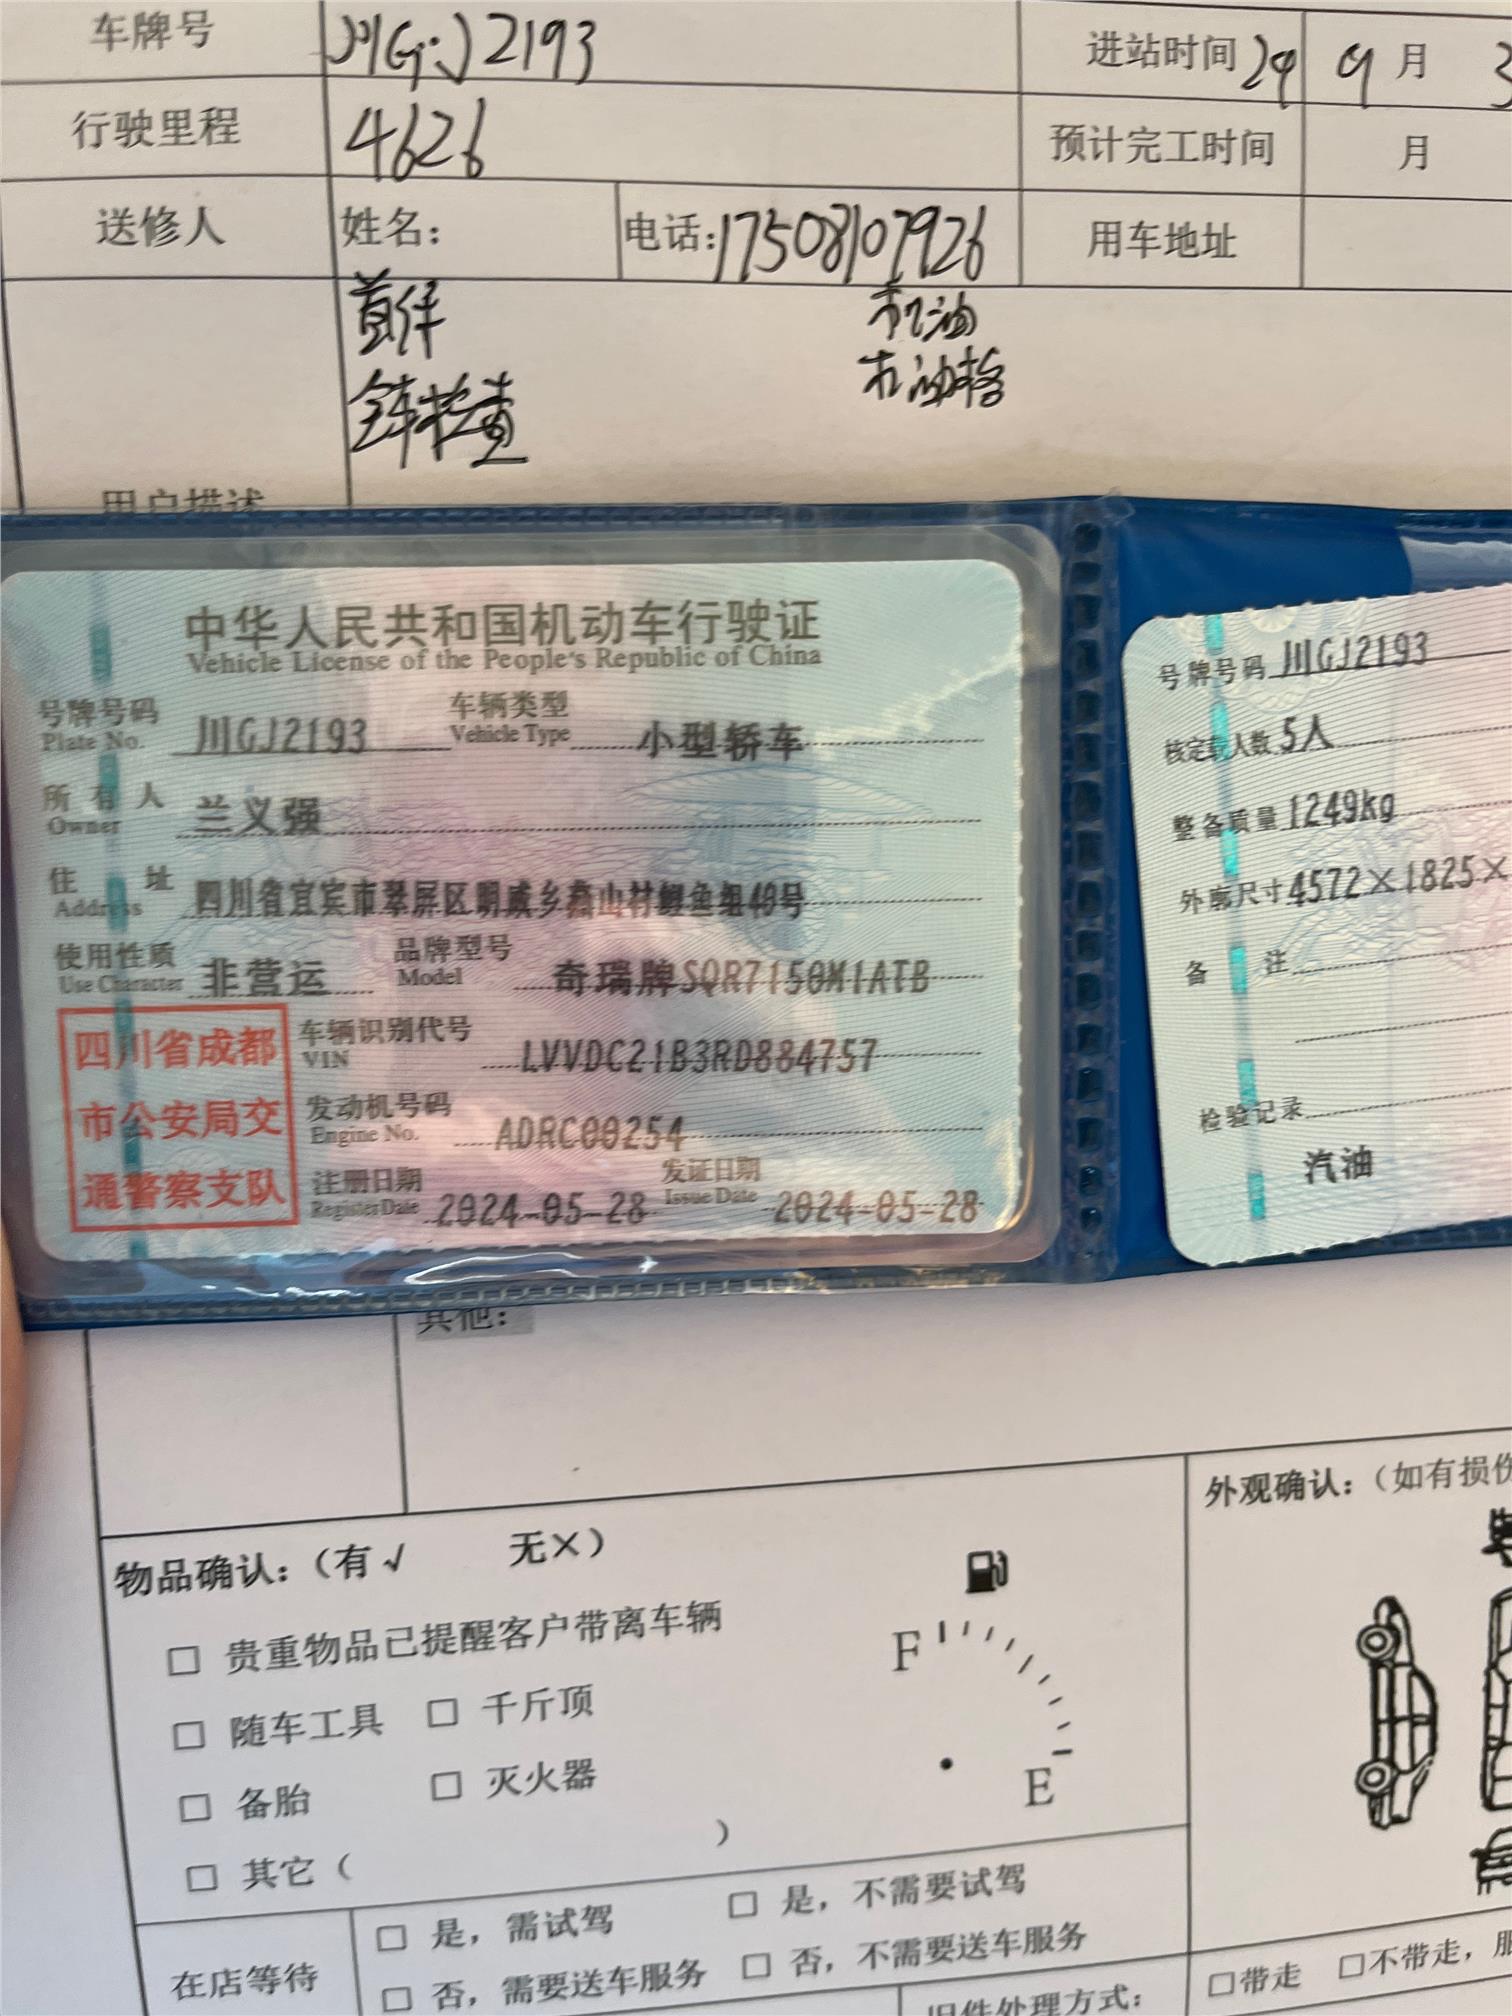 车牌号 川GJ2193 进站时间 24 9 月 3
行驶里程 4626 预计完工时间 月
送修人 姓名: 电话:17508107926 用车地址
首保 机油
全车检查 机油格
用户描述
中华人民共和国机动车行驶证
Vehicle License of the People's Republic of China
号牌号码 川GJ2193 车辆类型 小型轿车
Plate No. Vehicle Type
所有人 兰义强
Owner
住址 四川省宜宾市翠屏区明威乡 山村鲤鱼组40号
Address
使用性质 非营运 品牌型号 奇瑞牌SQR7150M1ATB
Use Character Model
车辆识别代号 LVVDC21B3RD884757
VIN
发动机号码 ADRC00254
Engine No.
注册日期 2024-05-28 发证日期 2024-05-28
Register Date Issue Date
四川省成都
市公安局交
通警察支队
号牌号码 川GJ2193
核定载人数 5人
整备质量 1249kg
外廓尺寸 4572×1825×
备注
检验记录
汽油
其他:
物品确认:(有√ 无×)
□ 贵重物品已提醒客户带离车辆
□ 随车工具 □ 千斤顶
□ 备胎 □ 灭火器
□ 其它( )
F
E
外观确认:(如有损伤
在店等待
□ 是,需试驾 □ 是,不需要试驾
□ 否,需要送车服务 □ 否,不需要送车服务
旧件处理方式:
□带走 □不带走,